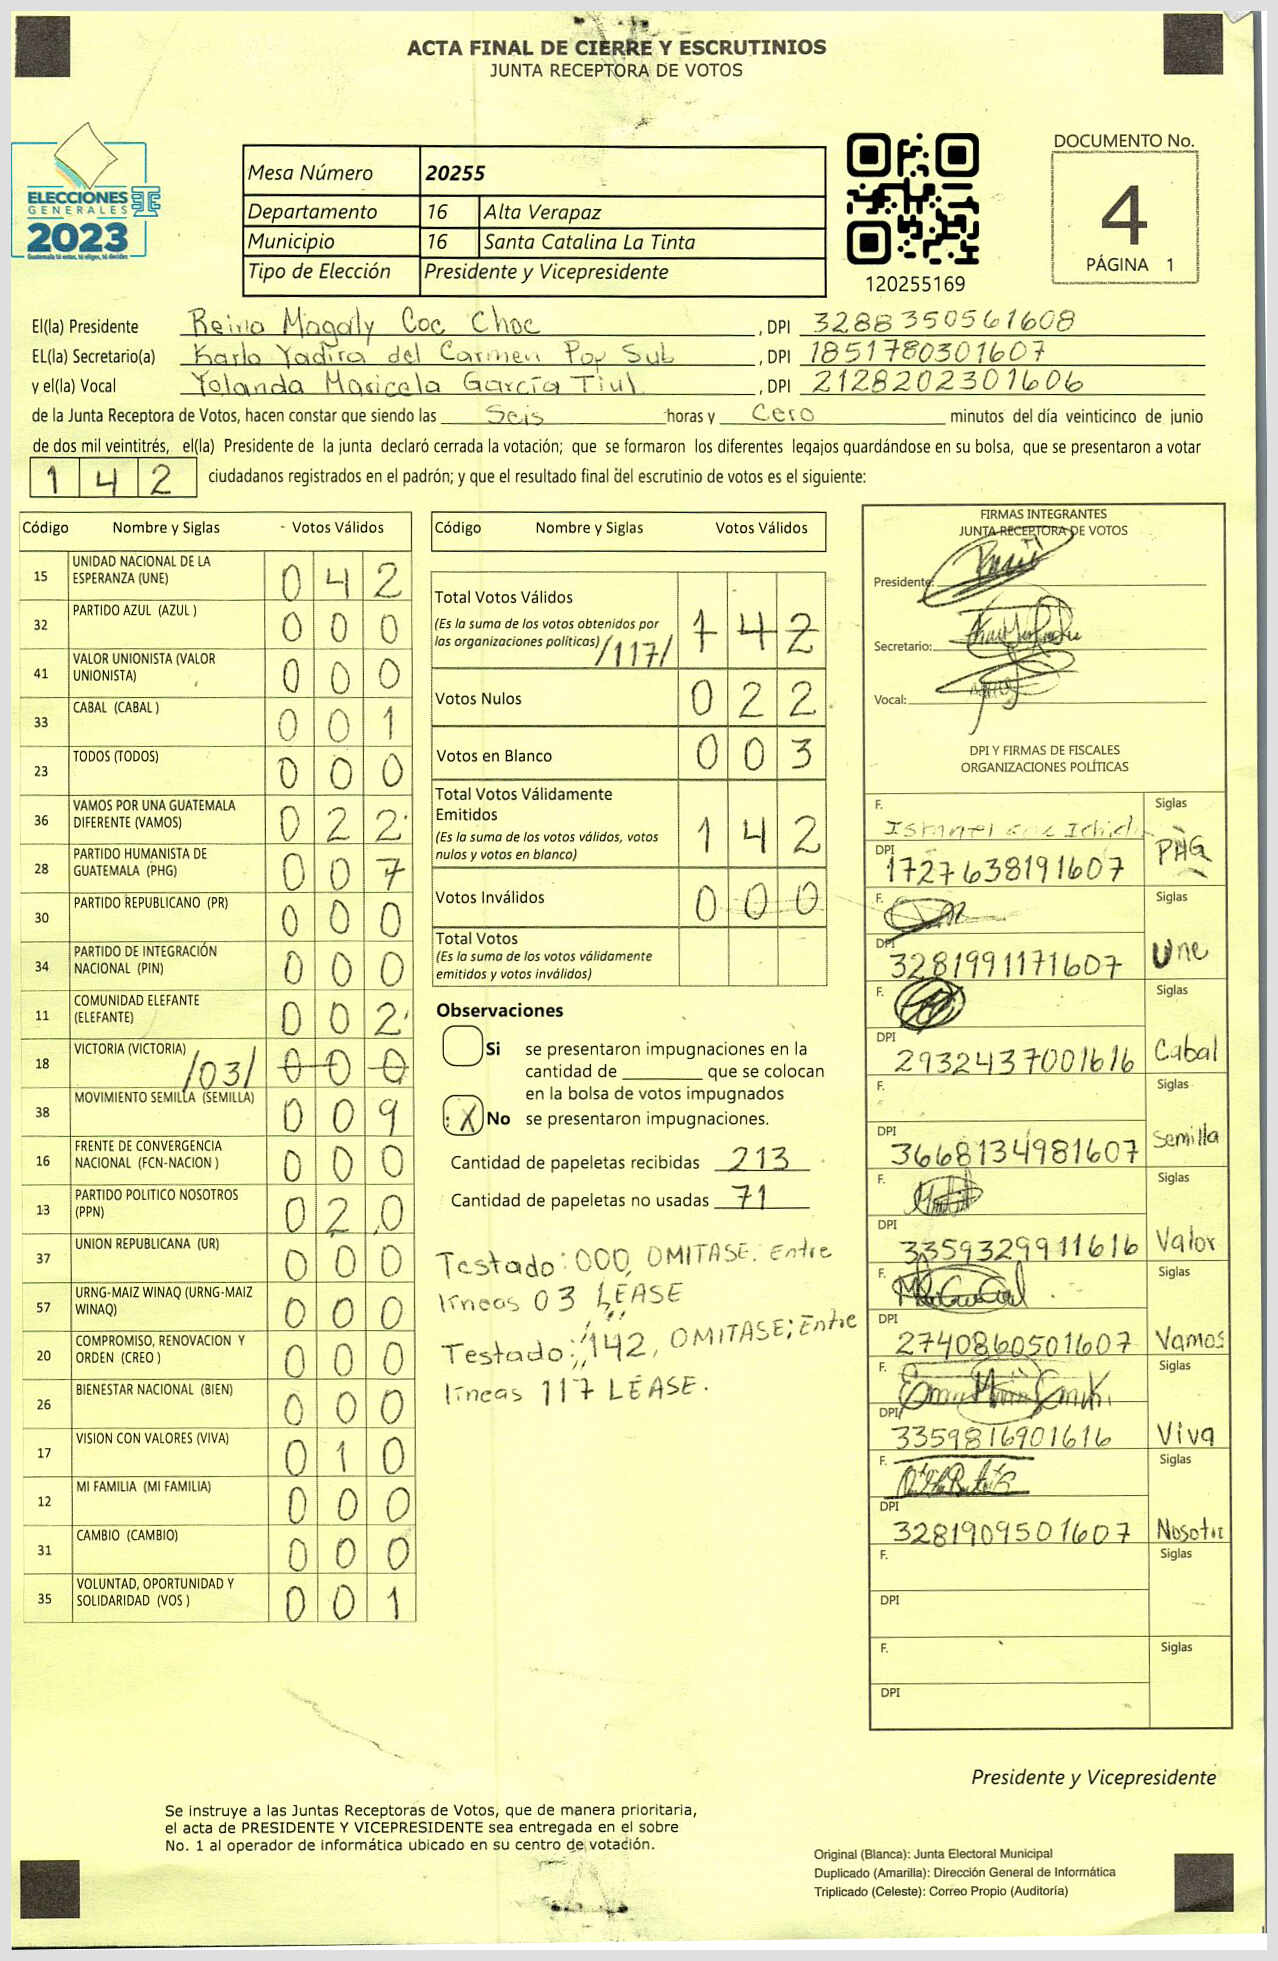 ACTA FINAL DE CIERRE Y ESCRUTINIOS
JUNTA RECEPTORA DE VOTOS
ELECCIONES
GENERALES
2023
Guatemala tú votas, tú eliges, tú decides
Mesa Número 20255
Departamento 16 Alta Verapaz
Municipio 16 Santa Catalina La Tinta
Tipo de Elección Presidente y Vicepresidente
120255169
DOCUMENTO No.
4
PÁGINA 1
El(la) Presidente Reina Magaly Coc Choc , DPI 3288350561608
EL(la) Secretario(a) Karla Yadira del Carmen Pop Sub , DPI 1851780301607
y el(la) Vocal Yolanda Maricela García Tiul , DPI 2128202301606
de la Junta Receptora de Votos, hacen constar que siendo las Seis horas y Cero minutos del día veinticinco de junio
de dos mil veintitrés, el(la) Presidente de la junta declaró cerrada la votación; que se formaron los diferentes legajos guardándose en su bolsa, que se presentaron a votar
1 4 2 ciudadanos registrados en el padrón; y que el resultado final del escrutinio de votos es el siguiente:
Código Nombre y Siglas Votos Válidos
15 UNIDAD NACIONAL DE LA ESPERANZA (UNE) 0 4 2
32 PARTIDO AZUL (AZUL ) 0 0 0
41 VALOR UNIONISTA (VALOR UNIONISTA) 0 0 0
33 CABAL (CABAL ) 0 0 1
23 TODOS (TODOS) 0 0 0
36 VAMOS POR UNA GUATEMALA DIFERENTE (VAMOS) 0 2 2
28 PARTIDO HUMANISTA DE GUATEMALA (PHG) 0 0 7
30 PARTIDO REPUBLICANO (PR) 0 0 0
34 PARTIDO DE INTEGRACIÓN NACIONAL (PIN) 0 0 0
11 COMUNIDAD ELEFANTE (ELEFANTE) 0 0 2
18 VICTORIA (VICTORIA) /03/ 0 0 0
38 MOVIMIENTO SEMILLA (SEMILLA) 0 0 9
16 FRENTE DE CONVERGENCIA NACIONAL (FCN-NACION ) 0 0 0
13 PARTIDO POLITICO NOSOTROS (PPN) 0 2 0
37 UNION REPUBLICANA (UR) 0 0 0
57 URNG-MAIZ WINAQ (URNG-MAIZ WINAQ) 0 0 0
20 COMPROMISO, RENOVACION Y ORDEN (CREO ) 0 0 0
26 BIENESTAR NACIONAL (BIEN) 0 0 0
17 VISION CON VALORES (VIVA) 0 1 0
12 MI FAMILIA (MI FAMILIA) 0 0 0
31 CAMBIO (CAMBIO) 0 0 0
35 VOLUNTAD, OPORTUNIDAD Y SOLIDARIDAD (VOS ) 0 0 1
Código Nombre y Siglas Votos Válidos
Total Votos Válidos
(Es la suma de los votos obtenidos por
las organizaciones políticas) /117/ 1 4 2
Votos Nulos 0 2 2
Votos en Blanco 0 0 3
Total Votos Válidamente
Emitidos
(Es la suma de los votos válidos, votos
nulos y votos en blanco) 1 4 2
Votos Inválidos 0 0 0
Total Votos
(Es la suma de los votos válidamente
emitidos y votos inválidos)
Observaciones
Si se presentaron impugnaciones en la
cantidad de ________ que se colocan
en la bolsa de votos impugnados
X No se presentaron impugnaciones.
Cantidad de papeletas recibidas 213
Cantidad de papeletas no usadas 71
Testado: 000, OMITASE. Entre
líneas 03 LÉASE
Testado: 142, OMITASE; Entre
líneas 117 LÉASE.
FIRMAS INTEGRANTES
JUNTA RECEPTORA DE VOTOS
Presidente:
Secretario:
Vocal:
DPI Y FIRMAS DE FISCALES
ORGANIZACIONES POLÍTICAS
F. Siglas
DPI 1727638191607 PHG
F. Siglas
DPI 3281991171607 Une
F. Siglas
DPI 2932437001616 Cabal
F. Siglas
DPI 3668134981607 Semilla
F. Siglas
DPI 3359329911616 Valor
F. Siglas
DPI 2740860501607 Vamos
F. Siglas
DPI 3359816901616 Viva
F. Siglas
DPI 3281909501607 Nosotr
F. Siglas
DPI
F. Siglas
DPI
Presidente y Vicepresidente
Se instruye a las Juntas Receptoras de Votos, que de manera prioritaria,
el acta de PRESIDENTE Y VICEPRESIDENTE sea entregada en el sobre
No. 1 al operador de informática ubicado en su centro de votación.
Original (Blanca): Junta Electoral Municipal
Duplicado (Amarilla): Dirección General de Informática
Triplicado (Celeste): Correo Propio (Auditoría)